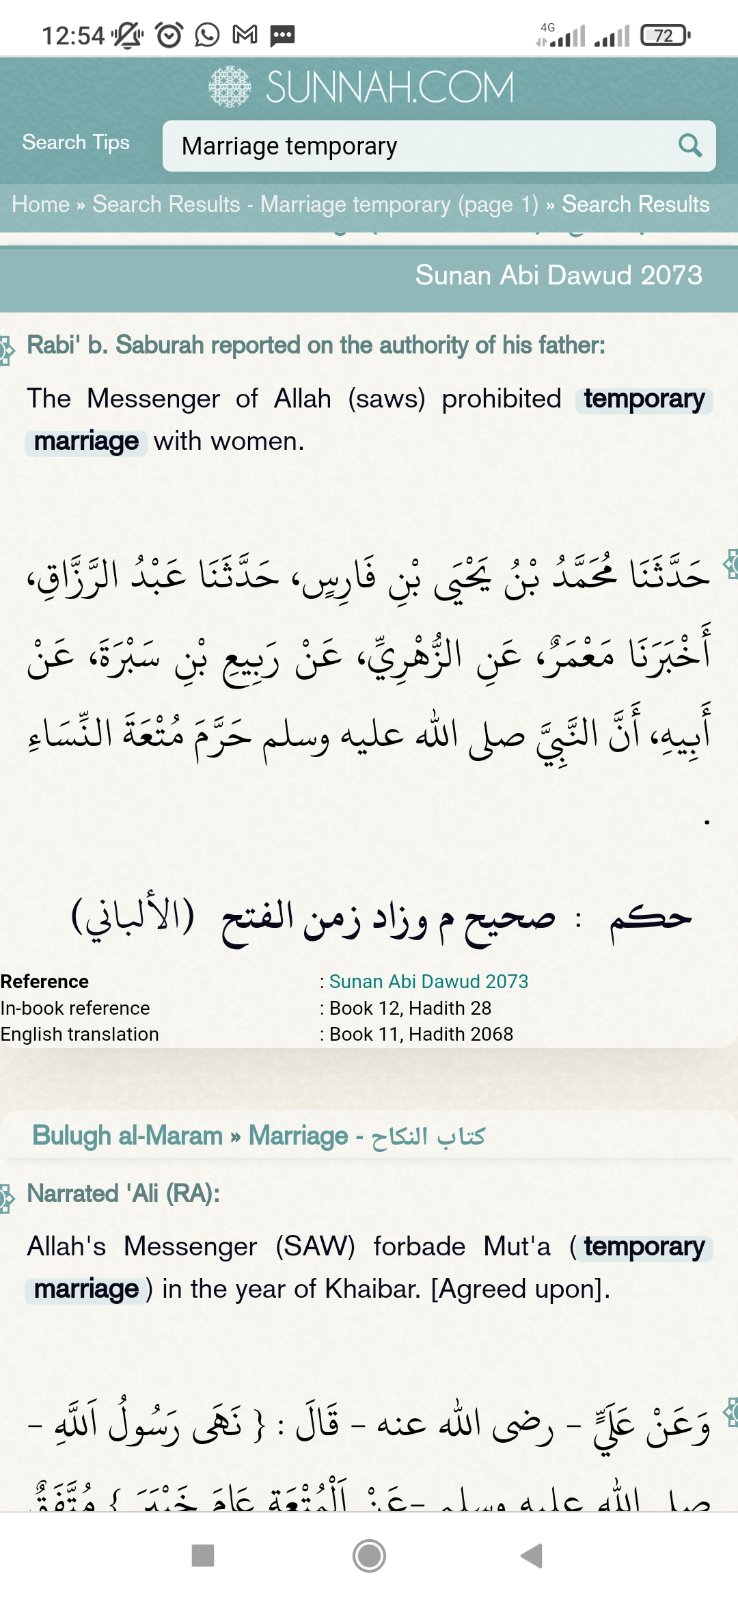 12:54
4G
72
SUNNAH.COM
Search Tips
Marriage temporary
Home » Search Results - Marriage temporary (page 1) » Search Results
Sunan Abi Dawud 2073
Rabi' b. Saburah reported on the authority of his father:
The Messenger of Allah (saws) prohibited temporary
marriage with women.
حَدَّثَنَا مُحَمَّدُ بْنُ يَحْيَى بْنِ فَارِسٍ، حَدَّثَنَا عَبْدُ الرَّزَّاقِ،
أَخْبَرَنَا مَعْمَرٌ، عَنِ الزُّهْرِيِّ، عَنْ رَبِيعِ بْنِ سَبْرَةَ، عَنْ
أَبِيهِ، أَنَّ النَّبِيَّ صلى الله عليه وسلم حَرَّمَ مُتْعَةَ النِّسَاءِ
.
حكم : صحيح م وزاد زمن الفتح (الألباني)
Reference : Sunan Abi Dawud 2073
In-book reference : Book 12, Hadith 28
English translation : Book 11, Hadith 2068
Bulugh al-Maram » Marriage - كتاب النكاح
Narrated 'Ali (RA):
Allah's Messenger (SAW) forbade Mut'a (temporary
marriage) in the year of Khaibar. [Agreed upon].
وَعَنْ عَلَيٍّ - رضى الله عنه - قَالَ : { نَهَى رَسُولُ اَللَّهِ -
صلى الله عليه وسلم -عَنْ اَلْمُتْعَةِ عَامَ خَيْبَرَ } مُتَّفَقٌ